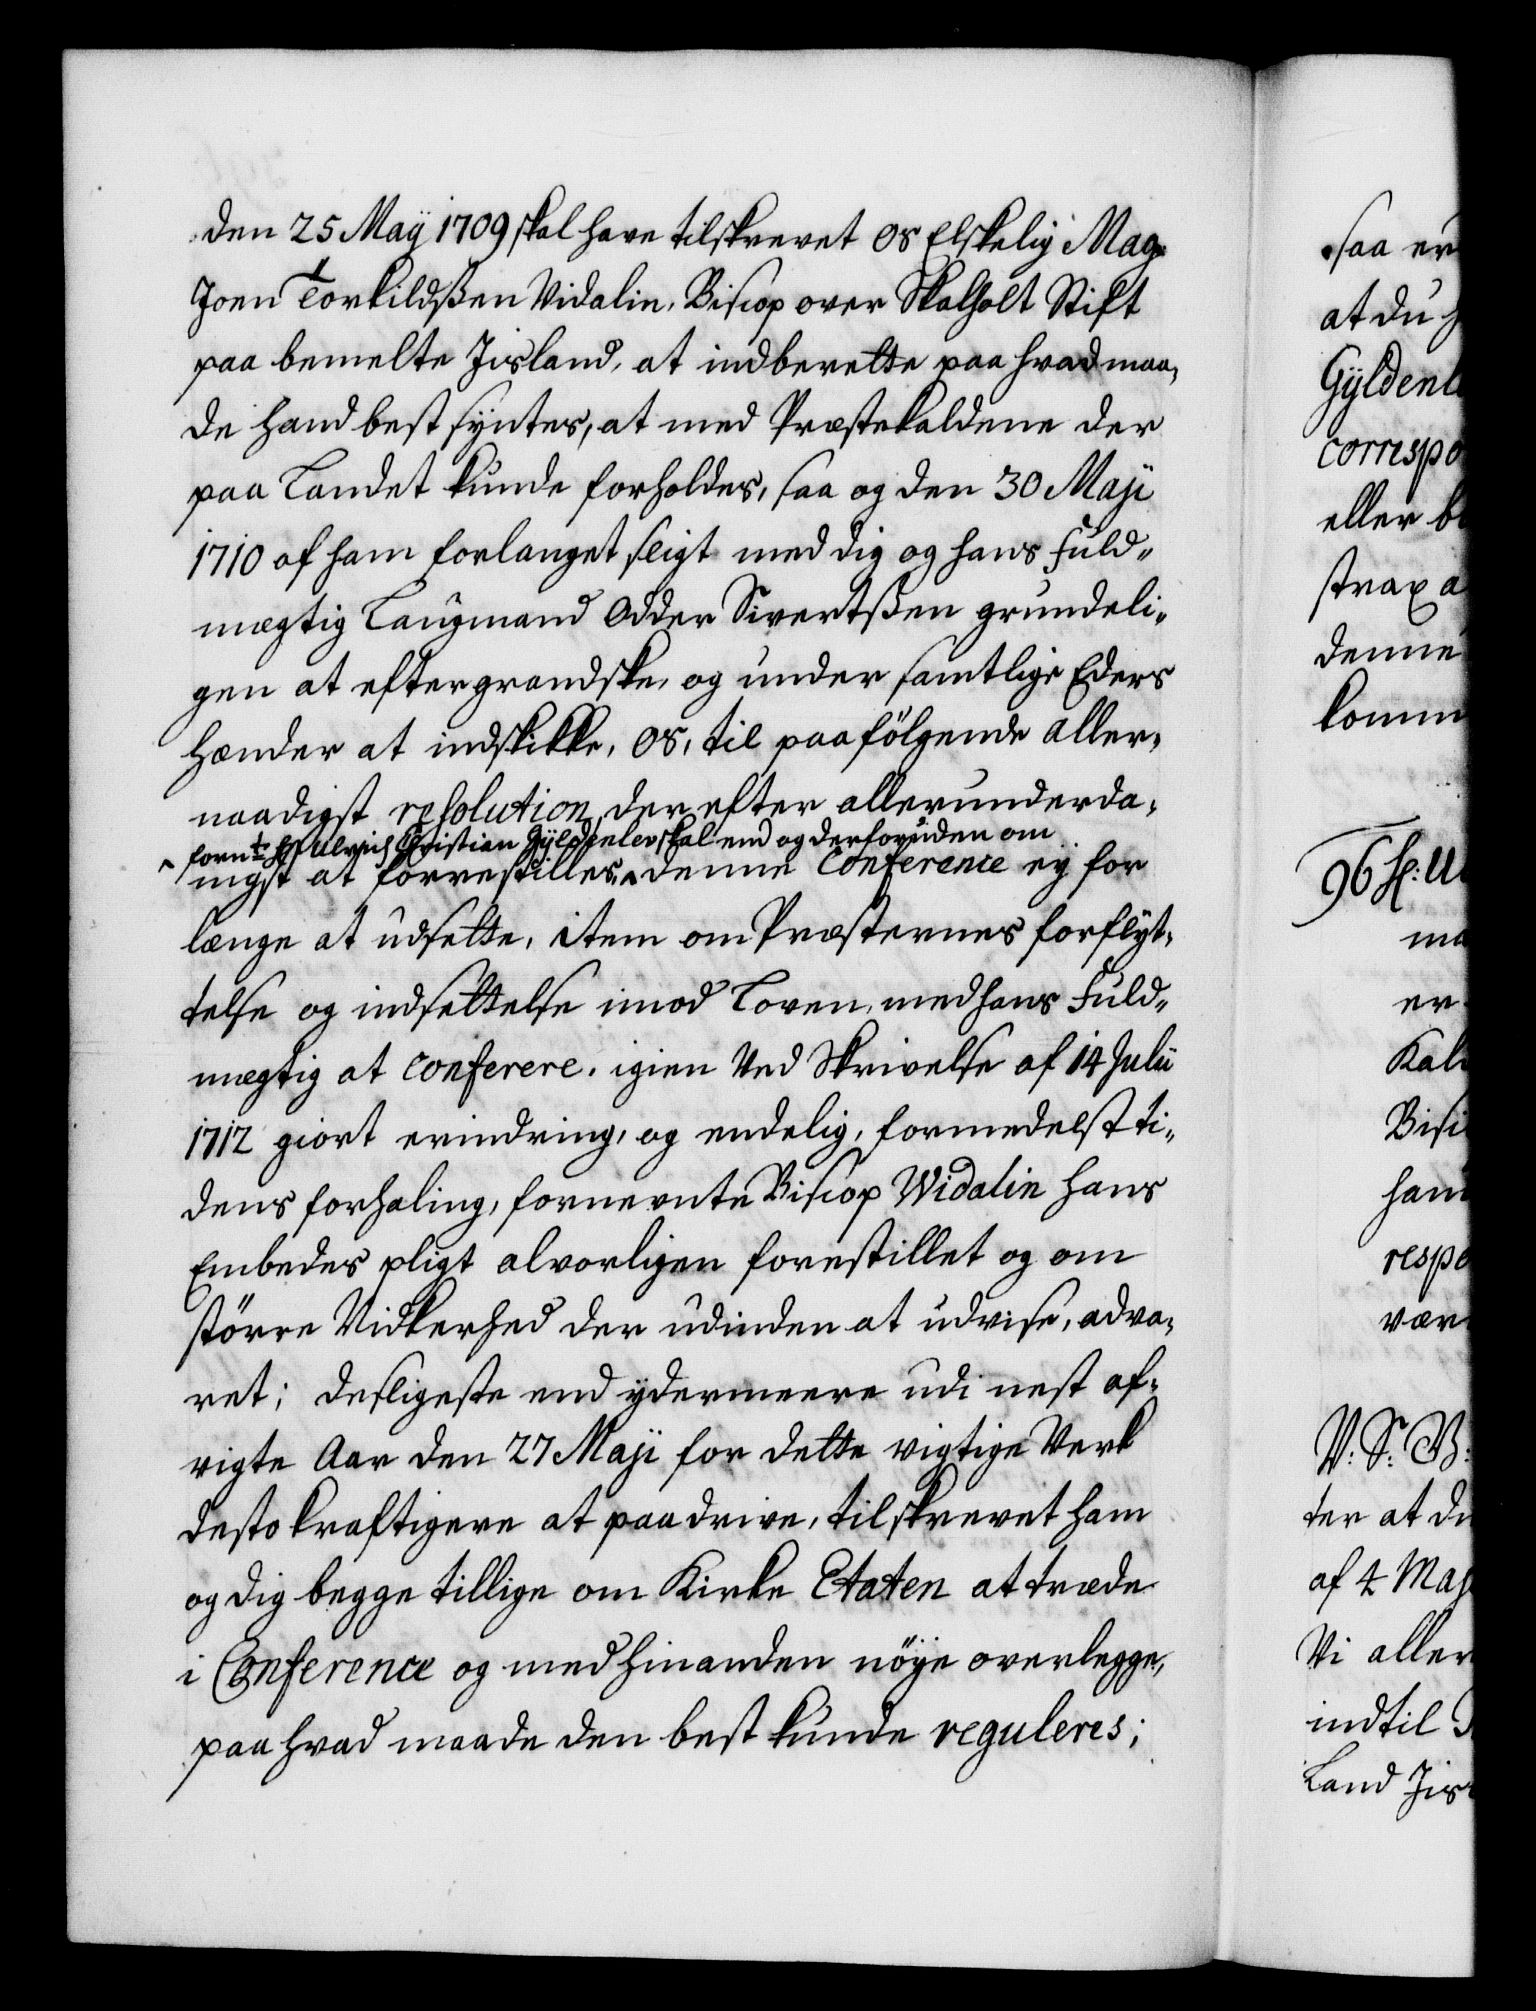 den 25 Maÿ 1709 skal have tilskrevet os Elskelig Mag:
Joen Torkildßen Vidalin, Biscop over Skalholt Stift
paa bemelte Jisland, at indberette paa hvad maa-
de hand best syntes, at med Præstekaldene der
paa Landet kunde forholdes, saa og den 30 Maji
1710 af ham forlanget sligt med dig og hans Fuld-
mægtig Laugmand Odder Sivertßen grundeli-
gen at eftergrandske, og under samtlige Eders
hænder at indskikke, os, til paafölgende aller-
naadigst resolution der efter allerunderda-
fornte Hr Ulrich Christian Gyldenlev skal end og derforuden om
nigst at forrestilles, denne Conference ey for
længe at udsette, item om Præsternes forflyt-
telse og indsettelse imod Loven, med hans Fuld-
mægtig at conferere. igien Ved Skrivelse af 14 Julii
1712 giort erindring, og endelig, formedelst ti-
dens forhaling, fornevnte Biscop Widalin hans
Embedes pligt alvorligen forestillet og om
större Vidkerhed der udinden at udvise, adva-
ret; desligeste end ydermeere udi nest af-
vigte Aar den 27 Maji for dette vigtige Verk
desto kraftigere at paadrive, tilskrevet ham
og dig begge tillige om Kirke Etaten at træde
i Conference og med hinanden nöye overlegge,
paa hvad maade den best kunde reguleres;
saa er
at du
Gyldenl
correspo
eller b
strax a
denne
komm
96 H: U
ma
er
Kal
Bis
ham
resp
vær
V: S: G:
ter at du
af 4 Maj
Vi aller
indtil
Land Jis